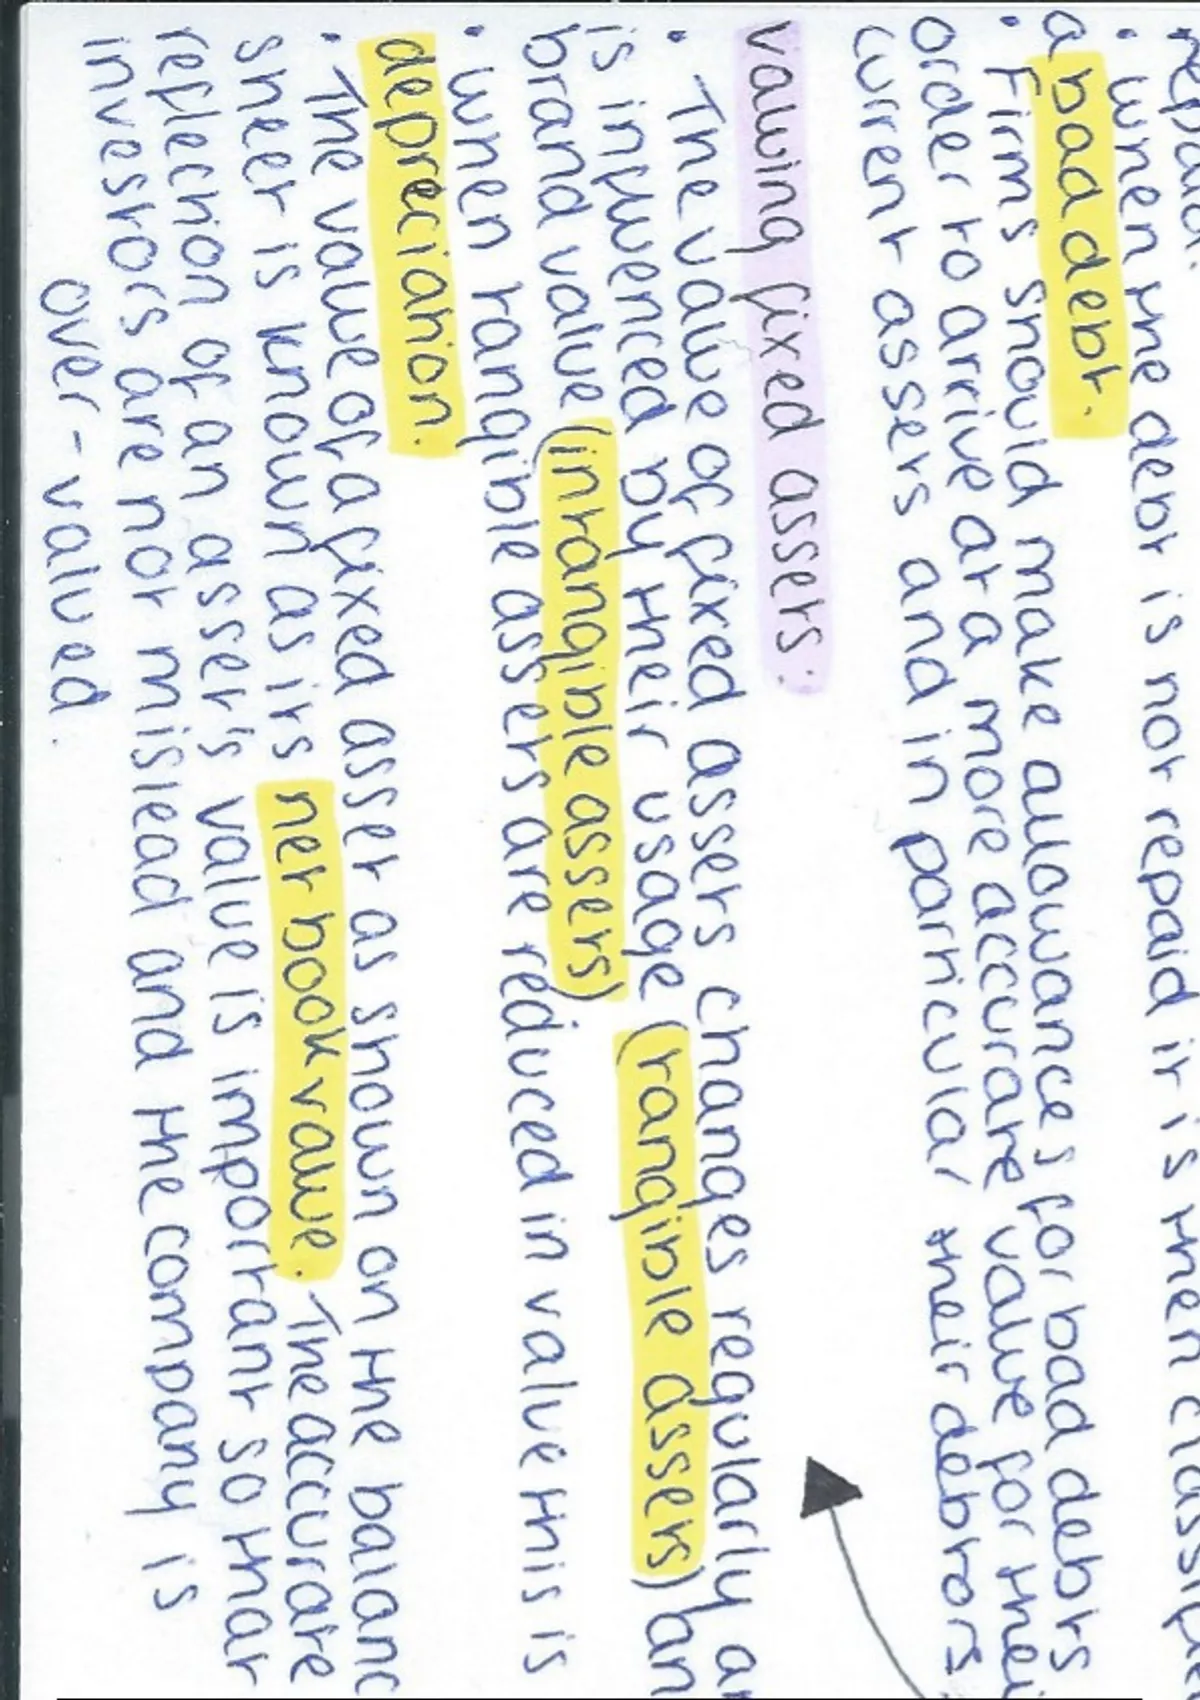 repaid.
• When the debt is not repaid it is then
a bad debt.
• Firms should make allowances for bad debts
order to arrive at a more accurate value for
current assets and in particular their debtors
valuing fixed assets:
• The value of fixed assets changes regularly
is influenced by their usage (tangible assets)
brand value (intangible assets)
• When tangible assets are reduced in value this is
depreciation.
• The value of a fixed asset as shown on the balanc
sheet is known as its net book value. The accurate
reflection of an asset's value is important so that
investors are not mislead and the company is
over-valued.